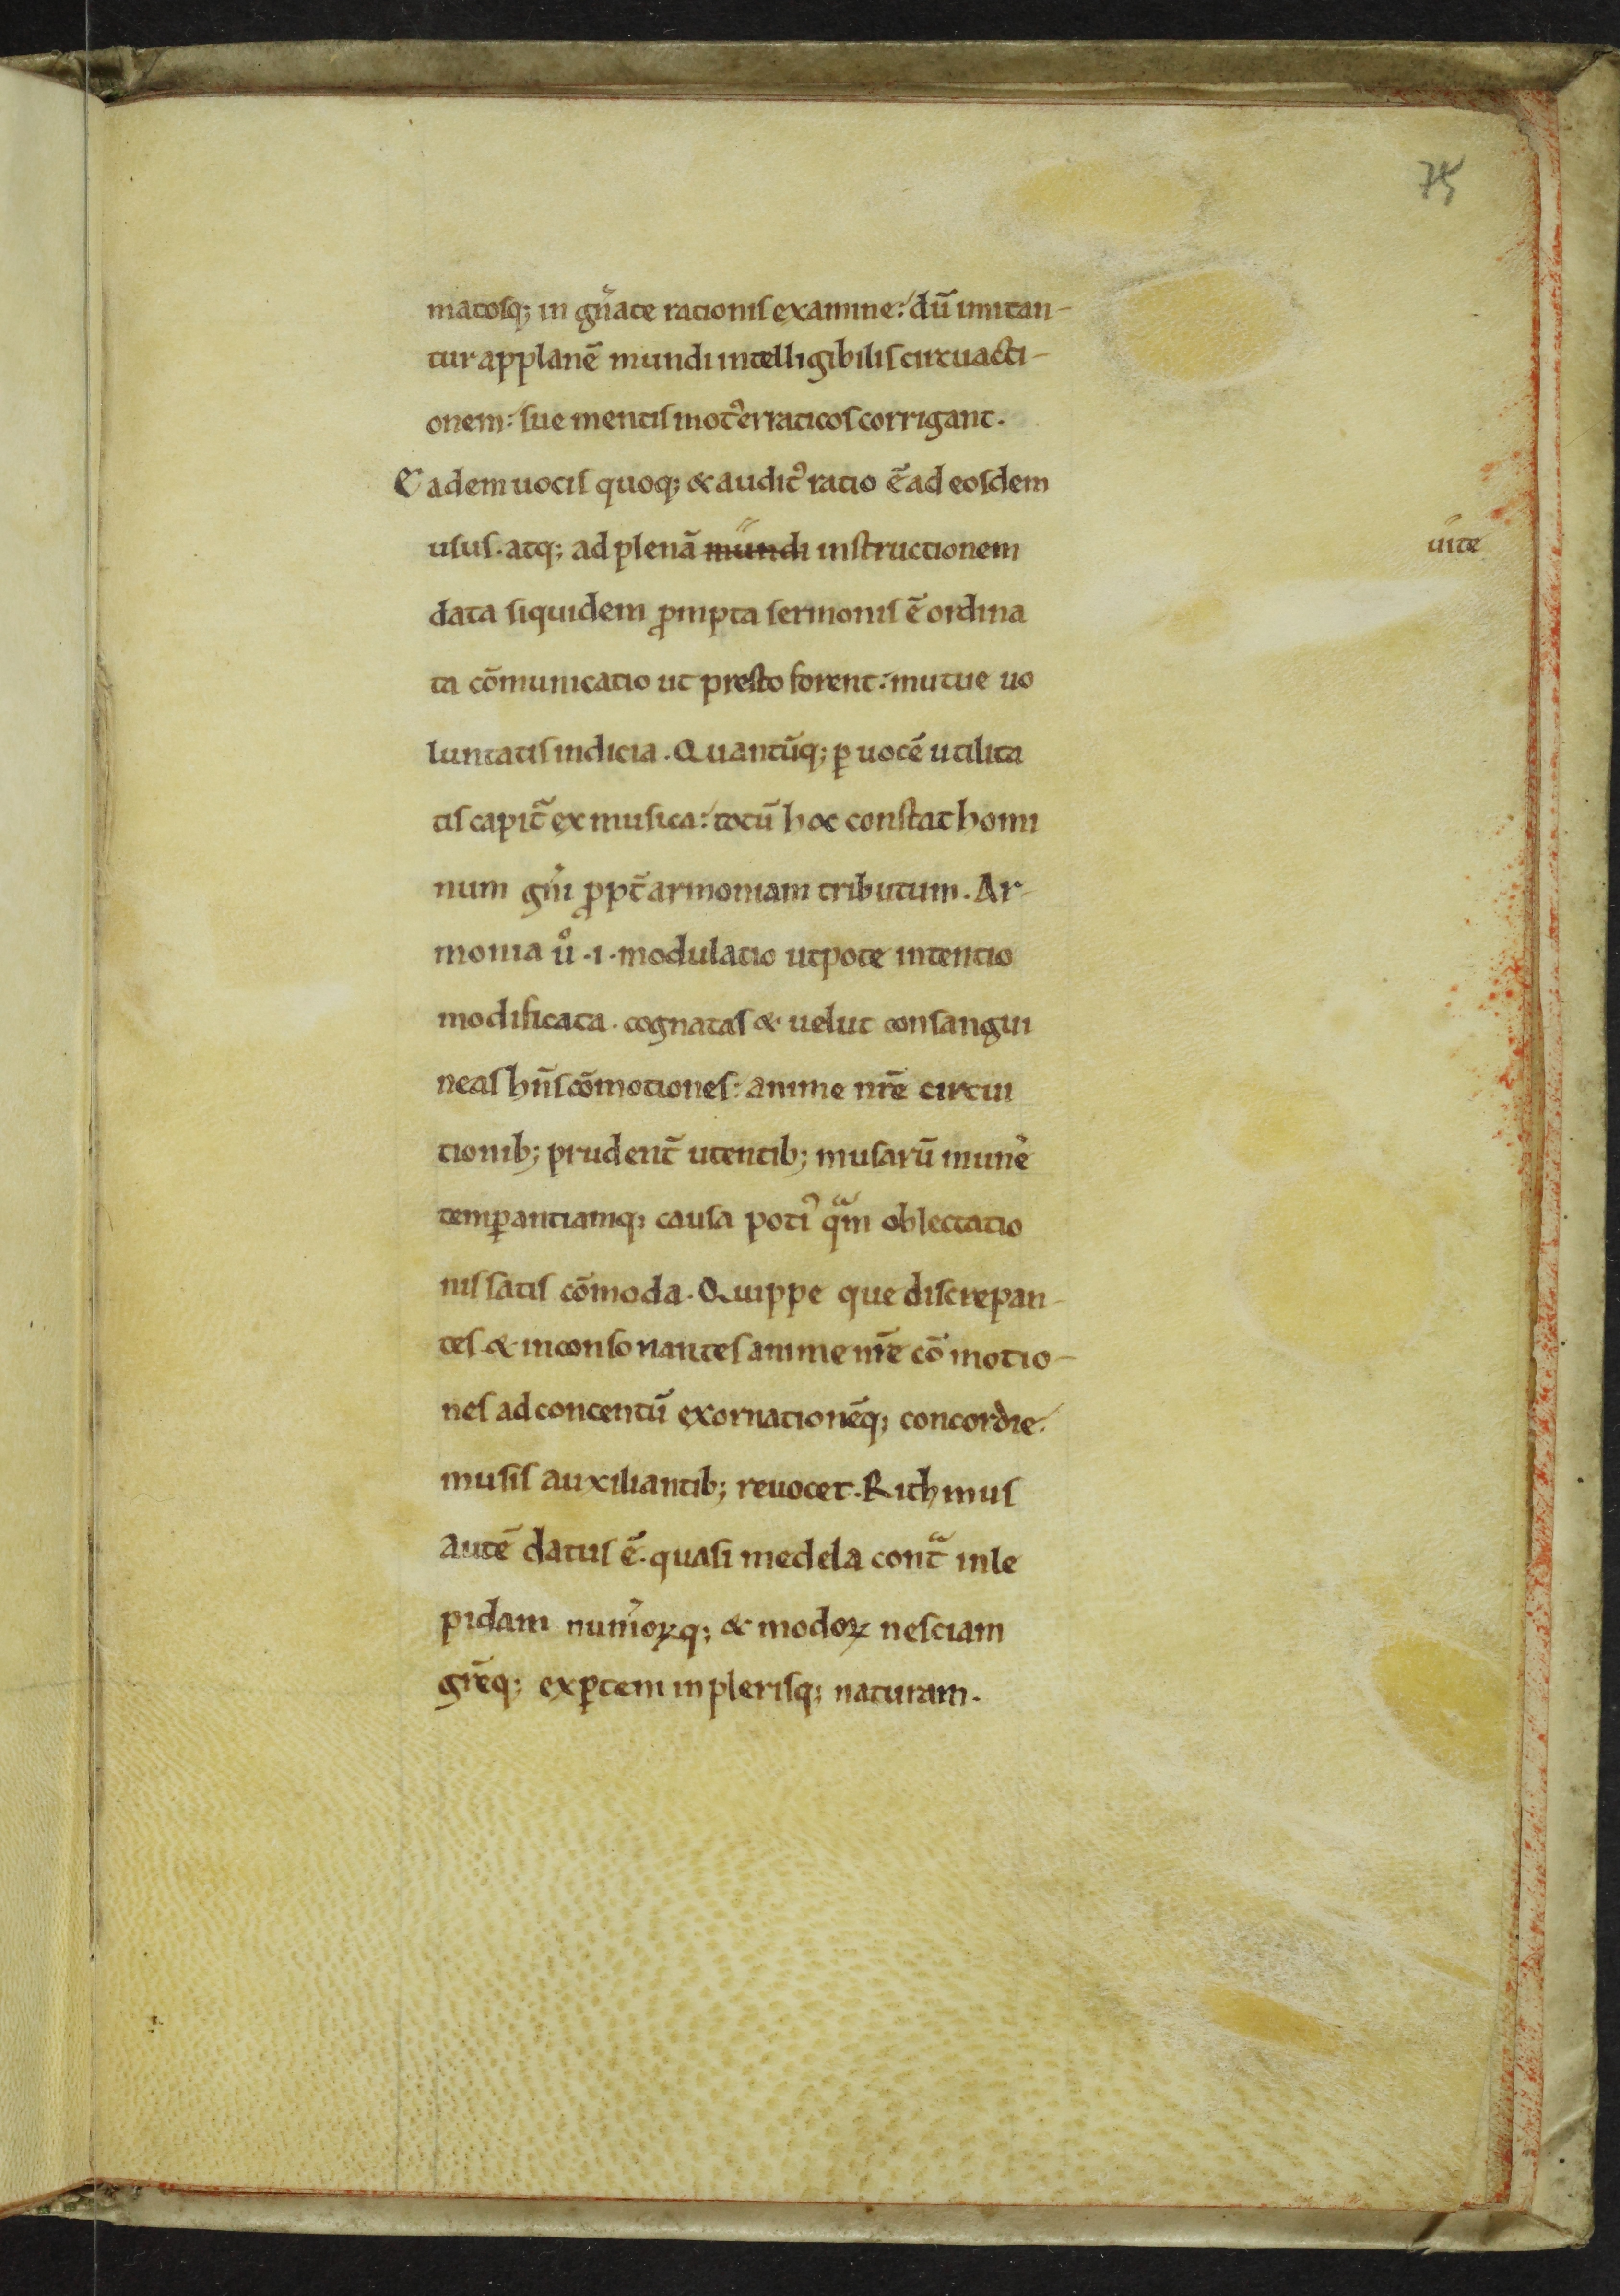 75
matosq; in gn̄ate rationis examine: dū imitan-
tur applanē mundi intelligibilis circuacti-
onem: sue mentis mot᾽erraticos corrigant.
Eadem uocis quoq; & audit᾽ ratio ē ad eosdem
usus. atq; ad plenā mundi instructionem
uite
data siquidem ꝓmpta sermonis ē ordina
ta cōmunicatio ut presto forent: mutue uo
luntatis indicia. Quantūq; ꝑ uocē utilita
tis capit̄ ex musica: totū hoc constat homi
num gn̄i ꝓpt̄ armoniam tributum. Ar-
monia u͛o .i. modulatio utpote intentio
modificata. cognatas & uelut consangui
neas hn̄s cōmotiones: anime nr̄e circui
tionib; prudent̄ utentib; musarū mun̄e
temꝑantiamq; causa poti᾽ qᵃm oblectatio
nis satis cōmoda. Quippe que discrepan-
tes & inconsonantes anime nr̄e cōmotio-
nes ad concentū exornationēq; concordie.
musis auxiliantib; reuocet. Rithmus
autē datus ē. quasi medela contᵃ inle
pidam num̄oꝝq; & modoꝝ nesciam
gr̄eq; exꝑtem in plerisq; naturam.